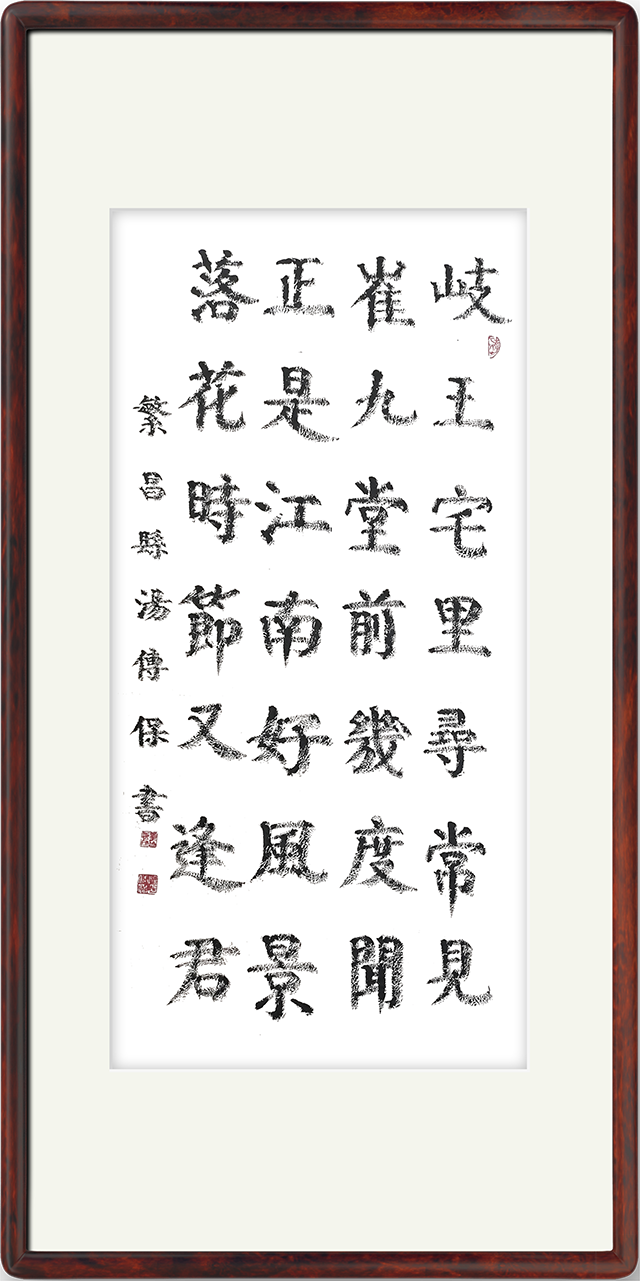 岐王宅里尋常見
崔九堂前幾度聞
正是江南好風景
落花時節又逢君
繁昌縣湯傳保書